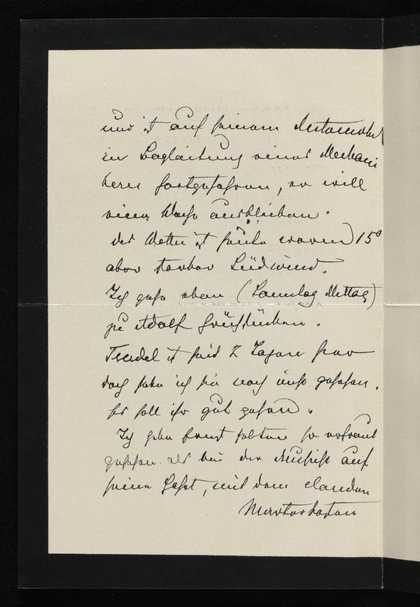 und ist auf seinem Automobil
in Begleitung eines Mechani
kers fortgefahren, er will
eine Woche ausbleiben.
Das Wetter ist heute warm 15°
aber starker Südwind.
Ich gehe eben (Sonntag Mittag)
zu Adolf frühstücken.
ist seit 2 Tagen hier
doch habe ich sie noch nicht gesehen.
Es soll ihr gut gehen.
Ich habe Ernst selten so erfreut
gesehen als bei der Aufschrift auf
seinem Heft, mit dem